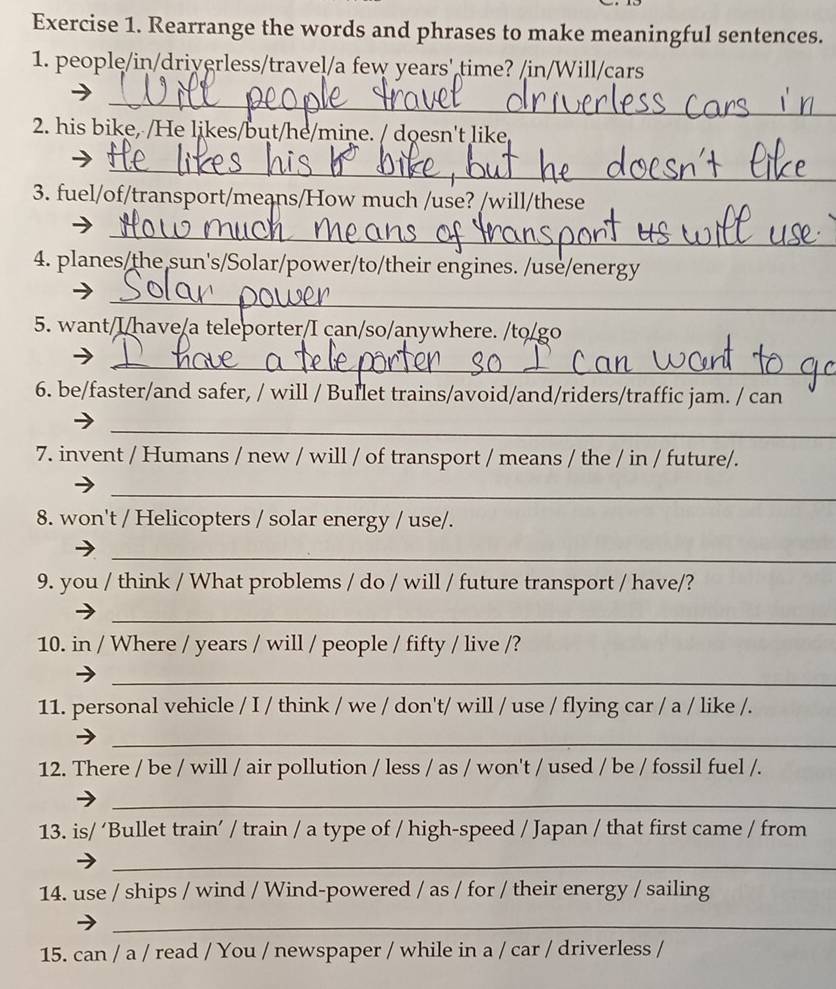 Exercise 1. Rearrange the words and phrases to make meaningful sentences.
1. people/in/driverless/travel/a few years' time? /in/Will/cars
→ Will people travel driverless cars in
2. his bike, /He likes/but/he/mine. / doesn't like
→ He likes his bike, but he doesn't like
3. fuel/of/transport/means/How much /use? /will/these
→ How much means of transport will use.
4. planes/the sun's/Solar/power/to/their engines. /use/energy
→ Solar power
5. want/I/have/a teleporter/I can/so/anywhere. /to/go
→ I have a teleporter so I can want to go
6. be/faster/and safer, / will / Bullet trains/avoid/and/riders/traffic jam. / can
→
7. invent / Humans / new / will / of transport / means / the / in / future/.
→
8. won't / Helicopters / solar energy / use/.
→
9. you / think / What problems / do / will / future transport / have/?
→
10. in / Where / years / will / people / fifty / live /?
→
11. personal vehicle / I / think / we / don't/ will / use / flying car / a / like /.
→
12. There / be / will / air pollution / less / as / won't / used / be / fossil fuel /.
→
13. is/ ‘Bullet train’ / train / a type of / high-speed / Japan / that first came / from
→
14. use / ships / wind / Wind-powered / as / for / their energy / sailing
→
15. can / a / read / You / newspaper / while in a / car / driverless /